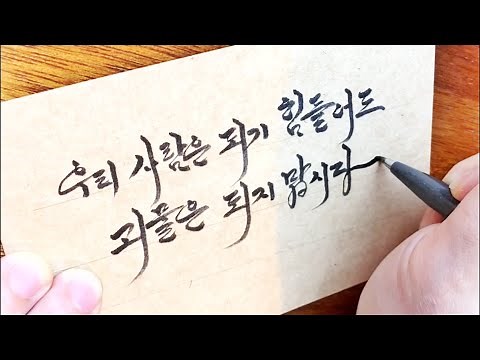 우리 사람은 되기 힘들어도
괴물은 되지 맙시다